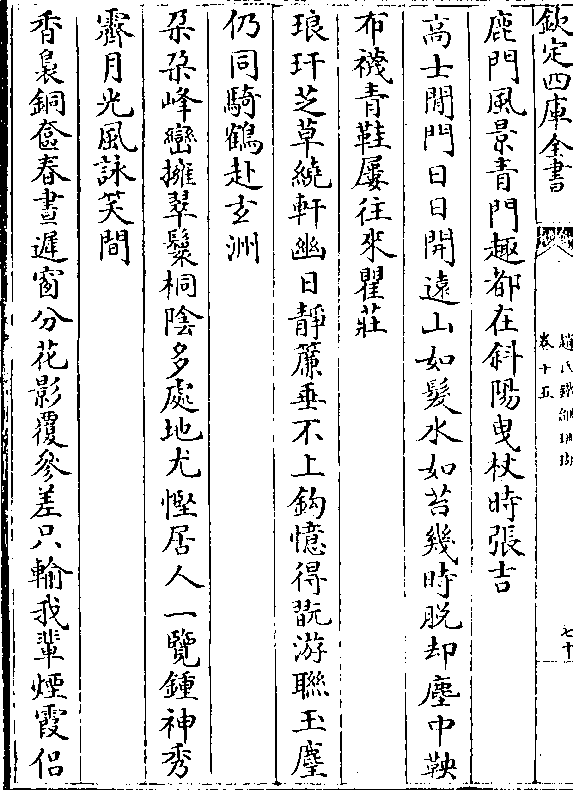 欽定四庫全書
趙氏鐵網珊瑚
卷十五
七十
鹿門風景青門趣都在斜陽曳杖時張吉
高士閒門日日開遠山如髮水如苔幾時脱却塵中鞅
布襪青鞋屢往來瞿莊
琅玕芝草繞軒幽日静簾垂不上鈎憶得翫游聯玉麈
仍同騎鶴赴玄洲
朶朶峰巒擁翠鬟桐陰多處地尤慳居人一覽鍾神秀
霽月光風詠笑間
香裊銅奩春晝遲窗分花影覆參差只輸我輩煙霞侣